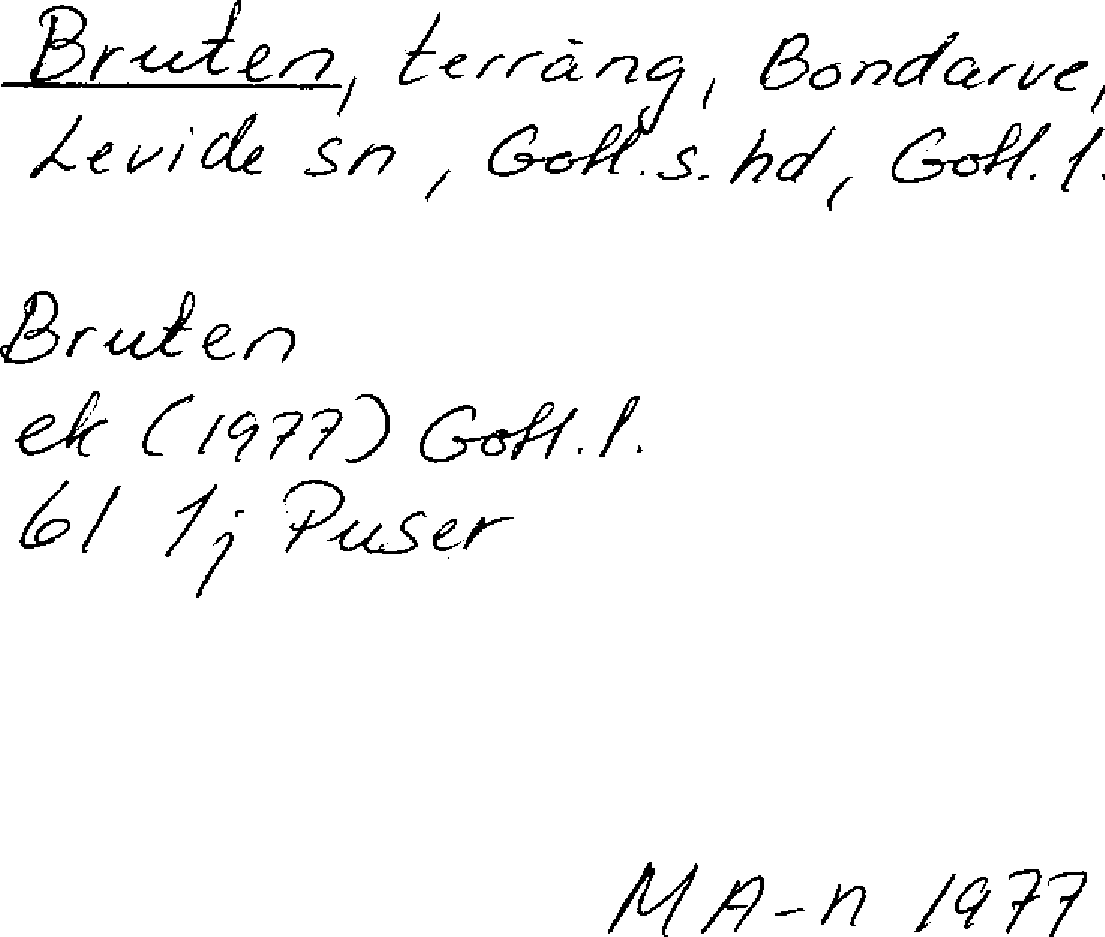 Bruten, terräng, Bondarve,
Levide sn, Gotl. s. hd, Gotl. l.
Bruten
ek (1977) Gotl. l.
6I 1j Puser
MA-n 1977